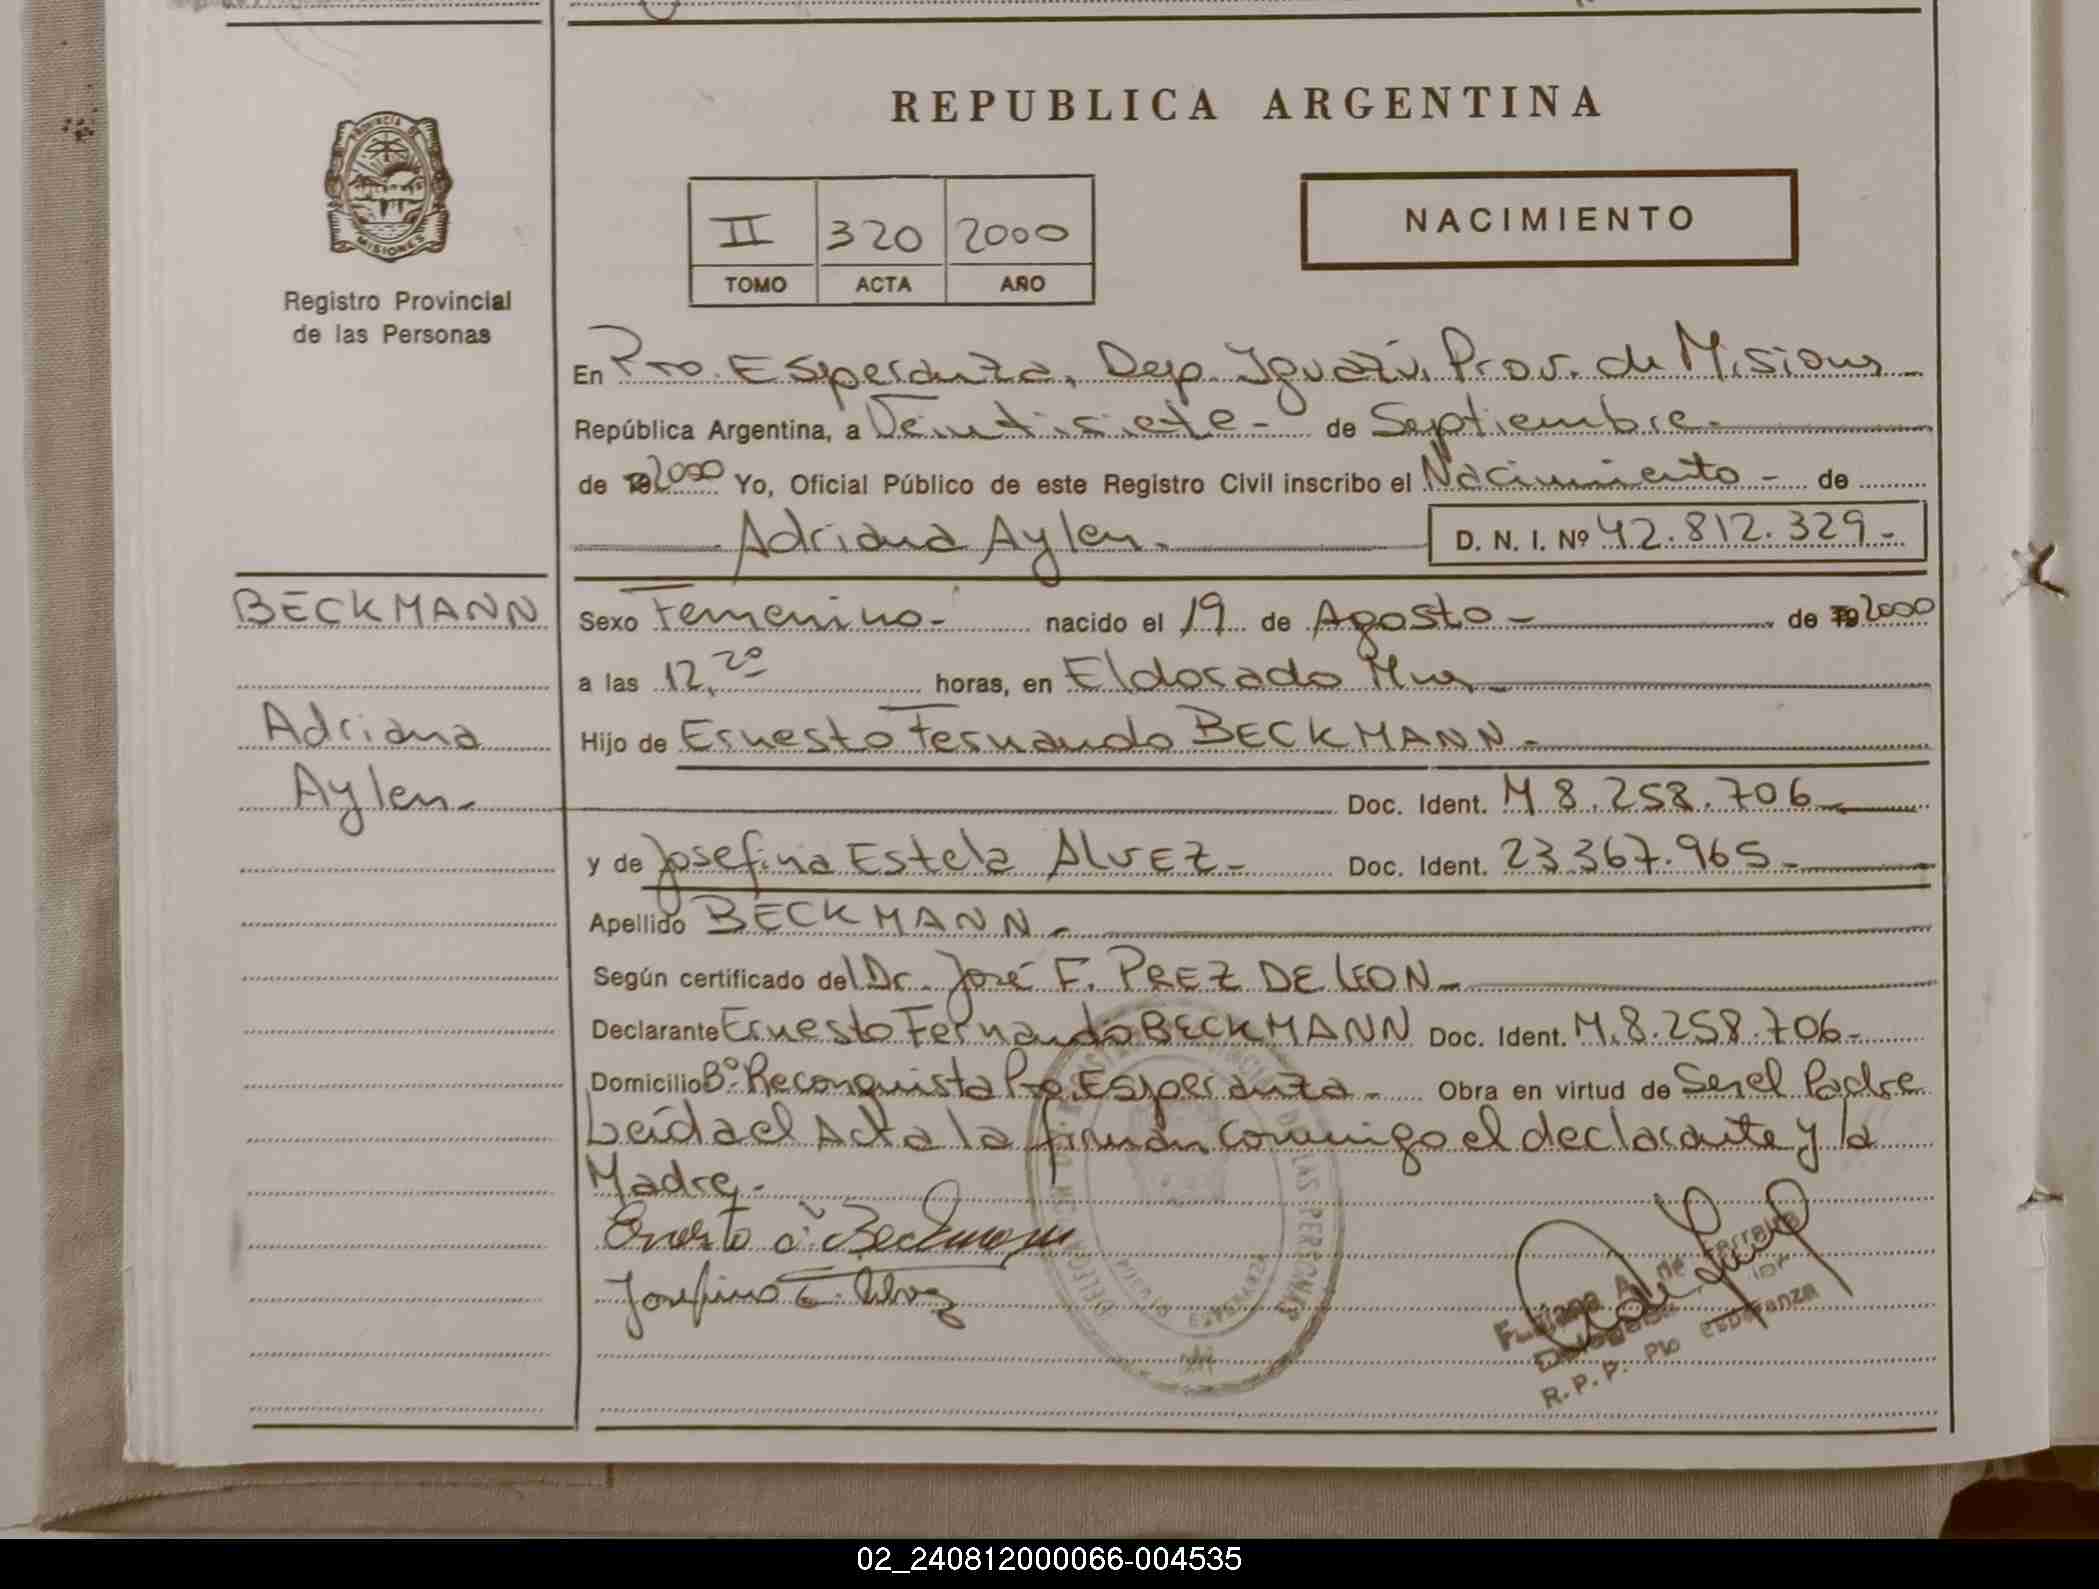 REPUBLICA ARGENTINA
PROVINCIA DE
MISIONES
Registro Provincial
de las Personas
II 320 2000
TOMO ACTA AÑO
NACIMIENTO
En Pto. Esperanza, Dep. Iguazú, Prov. de Misiones
República Argentina, a Veintisiete - de Septiembre.
de 19 2000 Yo, Oficial Público de este Registro Civil inscribo el Nacimiento - de
Adriana Aylen. D. N. I. Nº 42.812.329-
BECKMANN
Adriana
Aylen-
Sexo Femenino- nacido el 19 de Agosto - de 19 2000
a las 12,20 horas, en Eldorado Mnes-
Hijo de Ernesto Fernando BECKMANN-
Doc. Ident. M 8.258.706-
y de Josefina Estela AlvEZ- Doc. Ident. 23.367.965-
Apellido BECKMANN-
Según certificado del Dr. José F. PREZ DE LEON-
Declarante Ernesto Fernando BECKMANN Doc. Ident. M.8.258.706-
Domicilio Bº Reconquista Pto Esperanza- Obra en virtud de Ser el Padre
Leída el Acta la firman conmigo el declarante y la
Madre-
Ernesto Beckmann
Josefina E. Alvez
DE LAS PERSONAS
R.P.P. Pto Esperanza
02_240812000066-004535